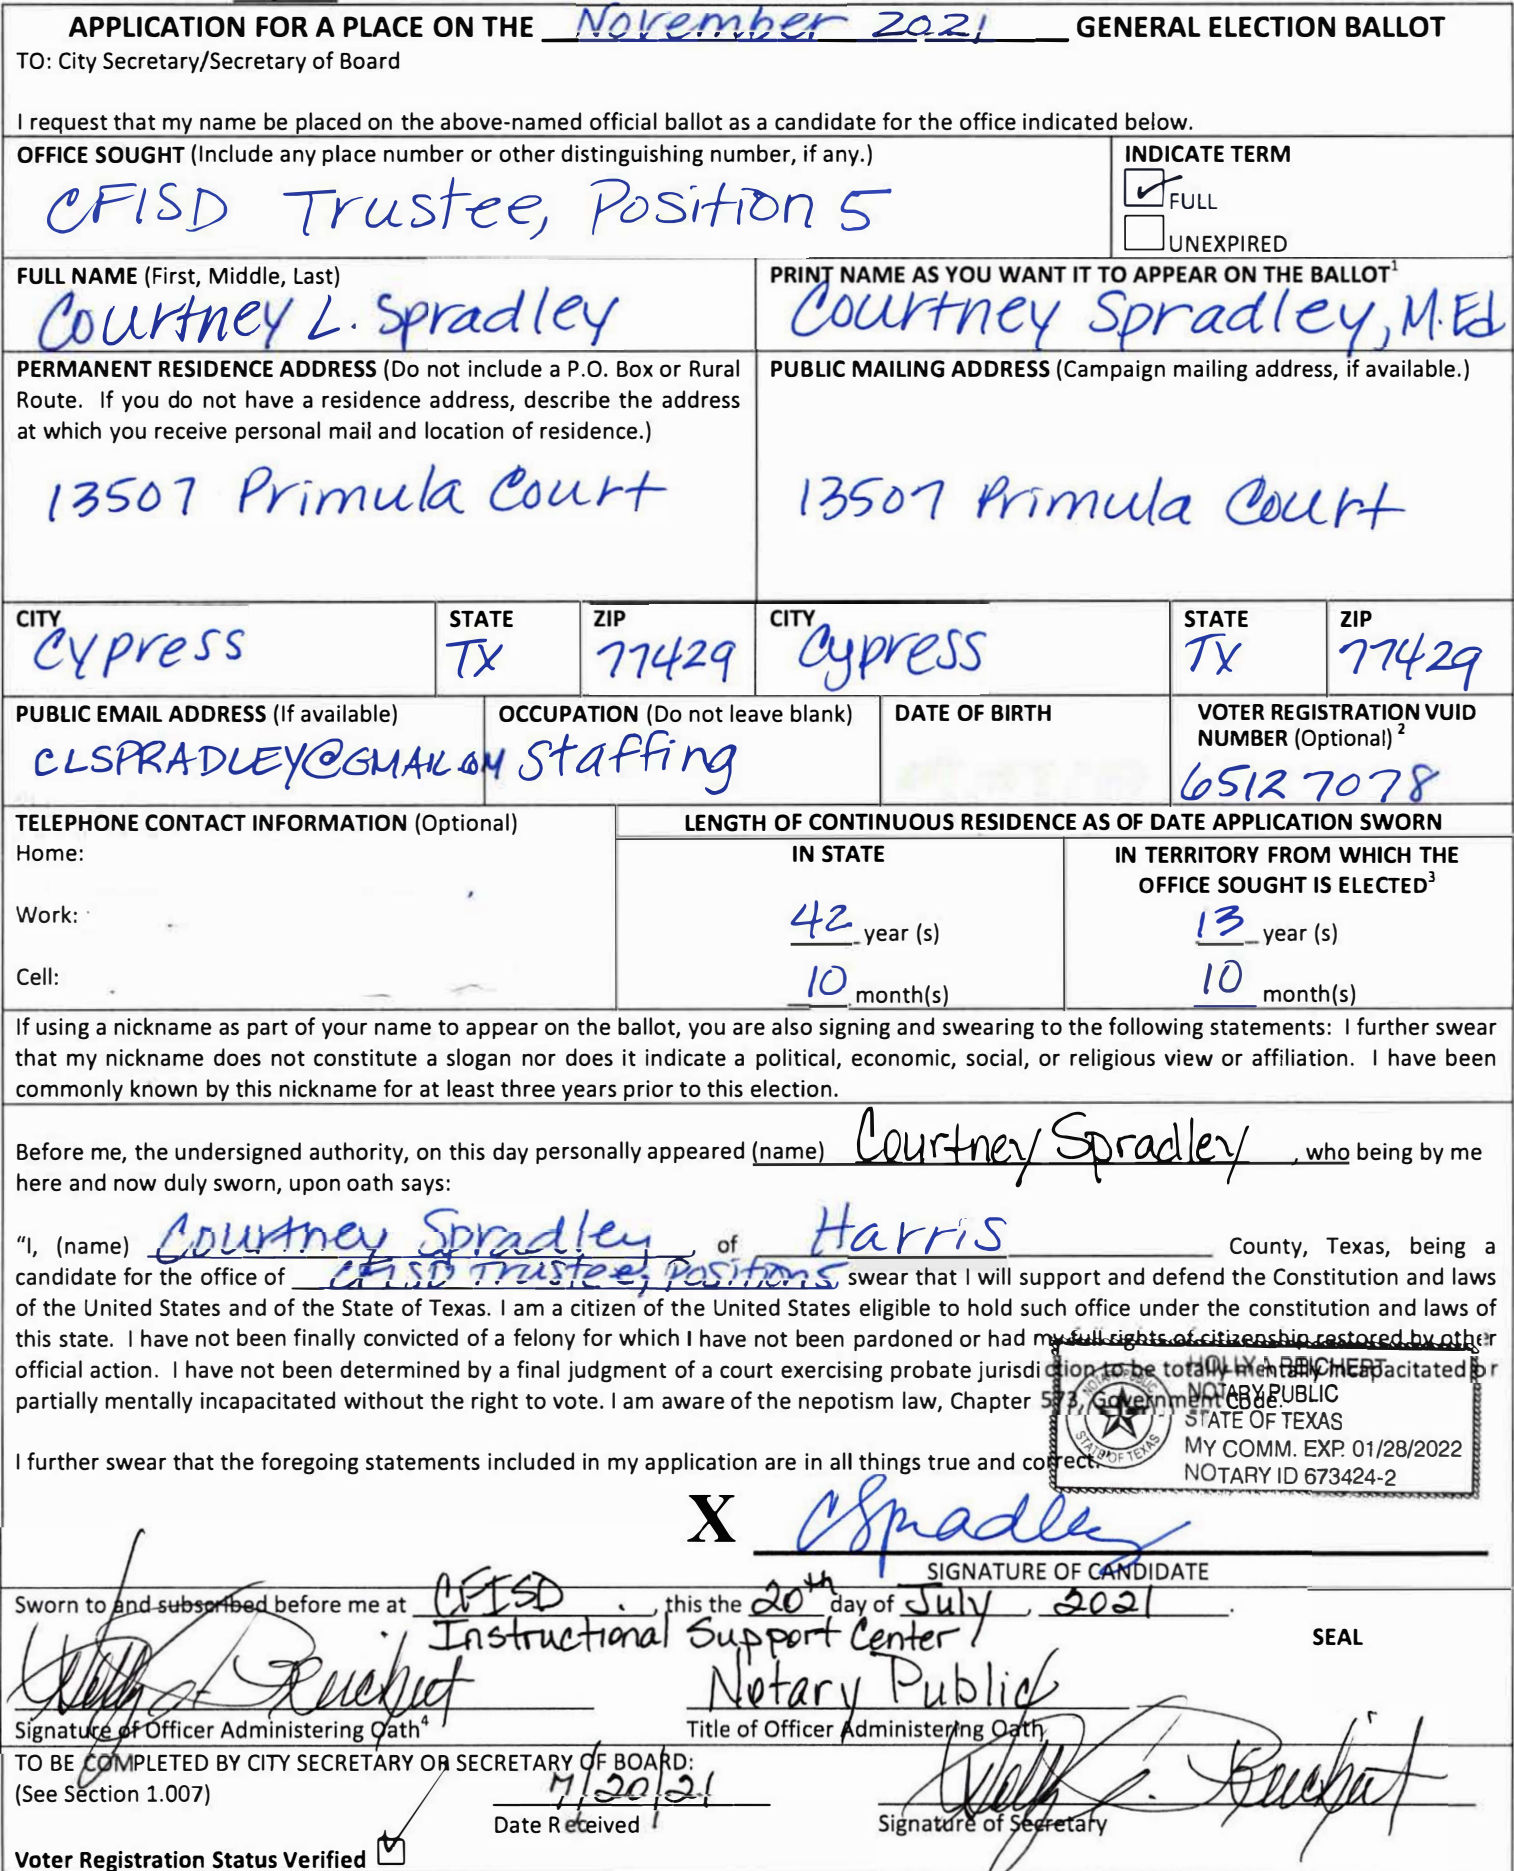 APPLICATION FOR A PLACE ON THE November 2021 GENERAL ELECTION BALLOT
TO: City Secretary/Secretary of Board
I request that my name be placed on the above-named official ballot as a candidate for the office indicated below.
OFFICE SOUGHT (Include any place number or other distinguishing number, if any.)
CFISD Trustee, Position 5
INDICATE TERM
FULL
UNEXPIRED
FULL NAME (First, Middle, Last)
Courtney L. Spradley
PRINT NAME AS YOU WANT IT TO APPEAR ON THE BALLOT1
Courtney Spradley, M.Ed
PERMANENT RESIDENCE ADDRESS (Do not include a P.O. Box or Rural
Route. If you do not have a residence address, describe the address
at which you receive personal mail and location of residence.)
13507 Primula Court
PUBLIC MAILING ADDRESS (Campaign mailing address, if available.)
13507 Primula Court
CITY
Cypress
STATE
TX
ZIP
77429
CITY
Cypress
STATE
TX
ZIP
77429
PUBLIC EMAIL ADDRESS (If available)
CLSPRADLEY@GMAIL.COM
OCCUPATION (Do not leave blank)
Staffing
DATE OF BIRTH
VOTER REGISTRATION VUID
NUMBER (Optional) 2
65127078
TELEPHONE CONTACT INFORMATION (Optional)
Home:
Work:
Cell:
LENGTH OF CONTINUOUS RESIDENCE AS OF DATE APPLICATION SWORN
IN STATE
42 year (s)
10 month(s)
IN TERRITORY FROM WHICH THE
OFFICE SOUGHT IS ELECTED3
13 year (s)
10 month(s)
If using a nickname as part of your name to appear on the ballot, you are also signing and swearing to the following statements: I further swear
that my nickname does not constitute a slogan nor does it indicate a political, economic, social, or religious view or affiliation. I have been
commonly known by this nickname for at least three years prior to this election.
Before me, the undersigned authority, on this day personally appeared (name) Courtney Spradley, who being by me
here and now duly sworn, upon oath says:
"I, (name) Courtney Spradley, of Harris County, Texas, being a
candidate for the office of CFISD Trustee, Position 5, swear that I will support and defend the Constitution and laws
of the United States and of the State of Texas. I am a citizen of the United States eligible to hold such office under the constitution and laws of
this state. I have not been finally convicted of a felony for which I have not been pardoned or had my full rights of citizenship restored by other
official action. I have not been determined by a final judgment of a court exercising probate jurisdiction to be totally mentally incapacitated or
partially mentally incapacitated without the right to vote. I am aware of the nepotism law, Chapter 573, Government Code.
I further swear that the foregoing statements included in my application are in all things true and correct.
HOLLY A REICHERT
NOTARY PUBLIC
STATE OF TEXAS
MY COMM. EXP. 01/28/2022
NOTARY ID 673424-2
NOTARY PUBLIC
STATE OF TEXAS
X CSpradley
SIGNATURE OF CANDIDATE
Sworn to and subscribed before me at CFISD, this the 20th day of July, 2021.
Instructional Support Center
SEAL
Notary Public
Signature of Officer Administering Oath4
Title of Officer Administering Oath
TO BE COMPLETED BY CITY SECRETARY OR SECRETARY OF BOARD:
(See Section 1.007)
7/20/21
Date Received
Signature of Secretary
Voter Registration Status Verified